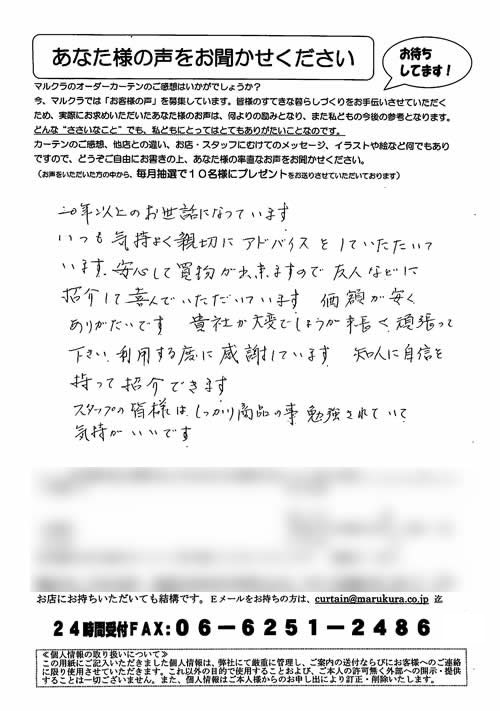 あなた様の声をお聞かせください
お待ち
してます!
マルクラのオーダーカーテンのご感想はいかがでしょうか?
今、マルクラでは「お客様の声」を募集しています。皆様のすてきな暮らしづくりをお手伝いさせていただく
ため、実際にお求めいただいたあなた様のお声は、何よりの励みとなり、また私どもの今後の参考となります。
どんな“ささいなこと”でも、私どもにとってはとてもありがたいことなのです。
カーテンのご感想、他店との違い、お店・スタッフにむけてのメッセージ、イラストや絵など何でもあり
ですので、どうぞご自由にお書きの上、あなた様の率直なお声をお聞かせください。
(お声をいただいた方の中から、毎月抽選で10名様にプレゼントをお送りさせていただいております)
二〇年以上とのお世話になっています
いつも気持よく親切にアドバイスをしていただいて
います。安心して買物が出来ますので友人などに
紹介して喜んでいただいています 価額が安く
ありがたいです 貴社が大変でしょうが末長く頑張って
下さい 利用する度に感謝しています 知人に自信を
持って紹介できます
スタップの皆様は しっかり商品の事勉強されていて
気持がいいです
お店にお持ちいただいても結構です。Eメールをお持ちの方は、curtain@marukura.co.jp 迄
24時間受付FAX:06-6251-2486
≪個人情報の取り扱いについて≫
この用紙にご記入いただきました個人情報は、弊社にて厳重に管理し、ご案内の送付ならびにお客様へのご連絡
に限り使用させていただきます。これ以外の目的で使用することおよび、ご本人の許可無く外部への開示・提供
することは一切ございません。また、個人情報はご本人様からのお申し出により訂正・削除いたします。